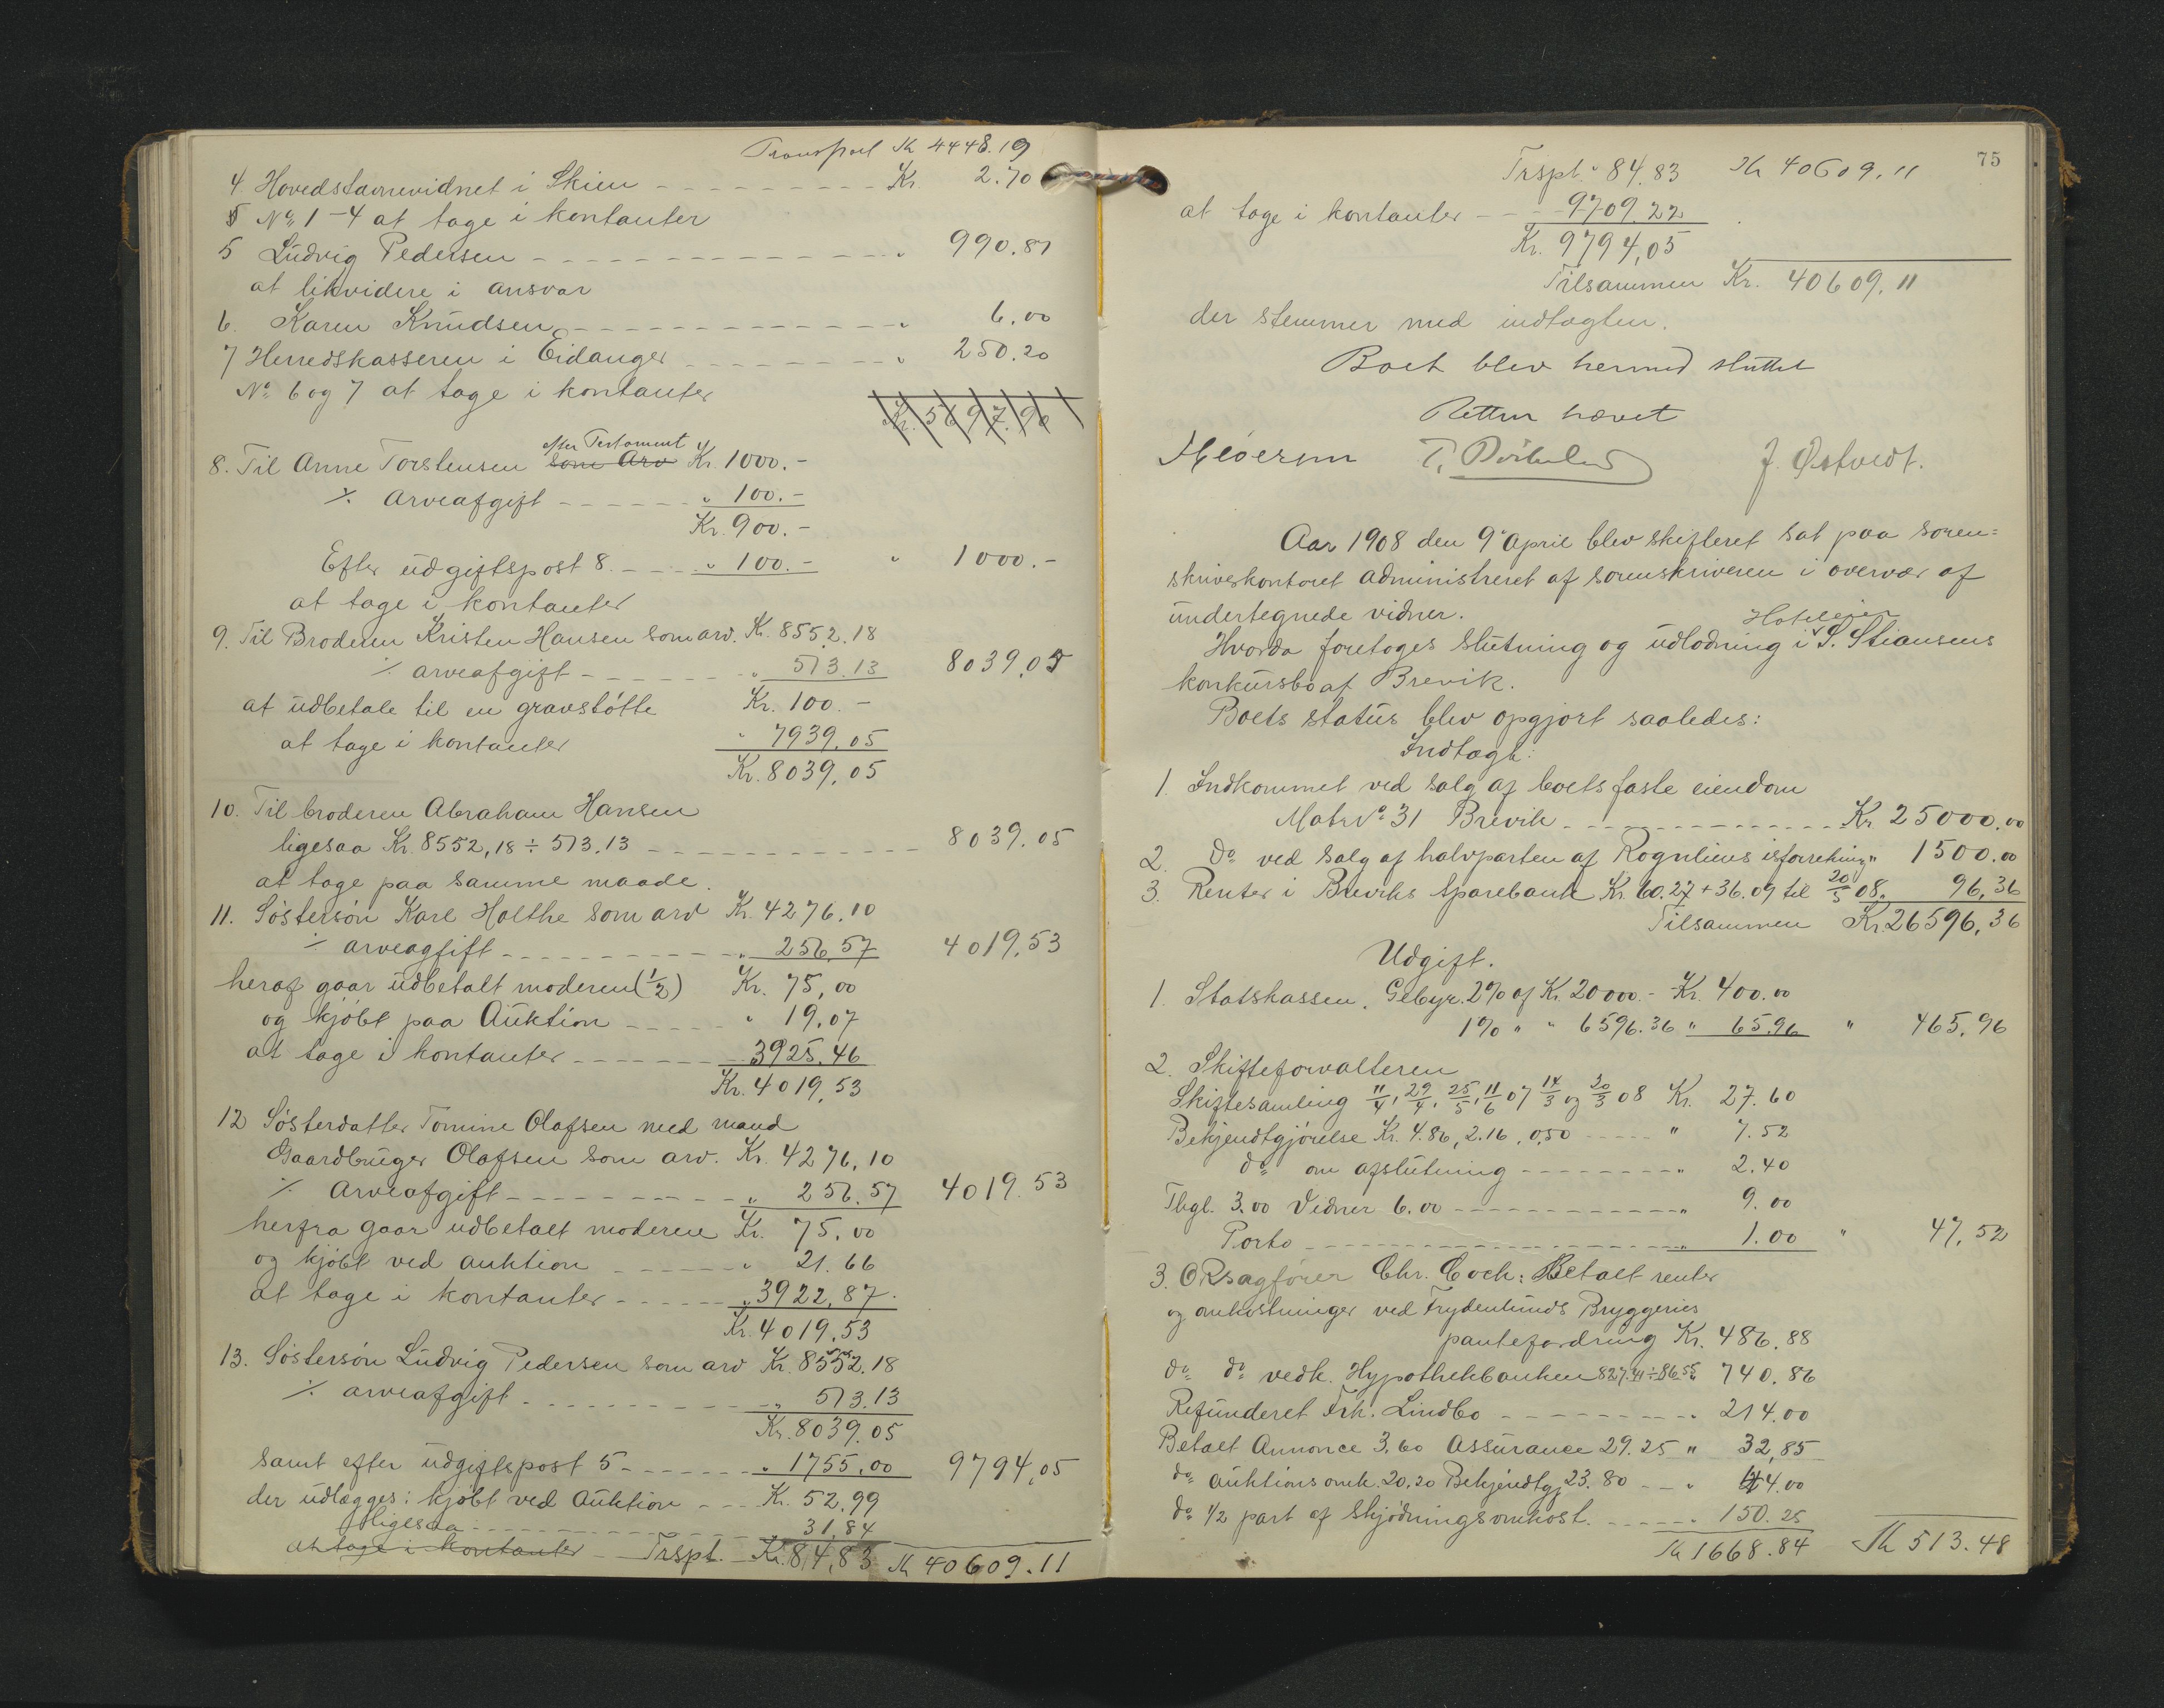 Transport Kr 4448.19
4. Hovedstavnevidnet i Skien - - - Kr. 2.70
No 1-4 at tage i kontanter
5 Ludvig Pedersen - - - " 990.87
at likvidere i ansvar
6. Karen Knudsen - - - " 6.00
7 Herredskasseren i Eidanger - - - " 250.20
No 6 og 7 at tage i kontanter
Kr. 5697.96
8. Til Anne Torstensen som Arv efter Testament Kr. 1000.-
·/. Arveafgift - - - " 100.-
Kr. 900.-
Efter udgiftspost 8. - - - " 100.- " 1000.-
at tage i kontanter
9. Til Broderen Kristen Hansen som arv. Kr. 8552.18
·/. arveafgift - - - " 513.13 8039.05
at udbetale til en gravstøtte Kr. 100.-
at tage i kontanter " 7939.05
Kr. 8039,05
10. Til broderen Abraham Hansen
ligesaa Kr. 8552,18 ÷ 513.13 - - - 8039.05
at tage paa samme maade.
11. Søstersøn Karl Holthe som arv Kr. 4276.10
·/. arveagfift - - - " 256,57 4019,53
heraf gaar udbetalt moderen (1/2) Kr. 75,00
og kjøbt paa Auktion - - - " 19.07
at tage i kontanter - - - 3925.46
Kr. 4019,53
12 Søsterdatter Tomine Olafsen med mand
Gaardbruger Olafsen som arv. Kr. 4276,10
·/. Arveafgift - - - " 256.57 4019.53
herfra gaar udbetalt moderen Kr. 75.00
og kjøbt ved auktion - - - " 21.66
at tage i kontanter - - - " 3922,87.
Kr. 4019,53
13. Søstersøn Ludvig Pedersen som arv Kr. 8552.18
·/. arveafgift - - - " 513.13
Kr. 8039.05
samt efter udgiftspost 5 - - - " 1755,00 9794,05
der udlægges: kjøbt ved Auktion - - - Kr. 52,99
ligesaa - - - 31,84
at tage i kontanter - Trspt. Kr. 84,83 Kr 40609.11
75
Trspt " 84.83 Kr 40609,11
at tage i kontanter - - - 9709.22
Kr. 9794,05
Tilsammen Kr. 40609.11
der stemmer med indtægten.
Boet blev hermed sluttet
Retten hævet
J. Østvedt.
Aar 1908 den 9de April blev skifteret sat paa soren=
skriverkontoret administreret af sorenskriveren i overvær af
undertegnede vidner.
Hvorda foretoges slutning og udlodning i Hoteleier S. Stiansens
konkursbo af Brevik.
Boets status blev opgjort saaledes:
Indtægt:
1. Indkommet ved salg af boets faste eiendom
Matr No 31 Brevik - - - Kr 25000.00
2. Do ved salg af halvparten af Rognliens isforretning " 1500.00
3. Renter i Breviks Sparebank Kr. 60.27 + 36.09 til 20/5 08 " 96,36
Tilsammen Kr. 26596,36
Udgift.
1. Statskassen. Gebyr. 2% af Kr. 20000.- Kr. 400.00
1% " " 6596.36 " 65.96 " 465.96
2. Skifteforvalteren
Skiftesamling 11/4, 29/4, 25/5, 11/6 07 14/3 og 20/3 08 Kr. 27.60
Bekjendtgjørelse Kr. 4.86, 2.16, 0,50 - - - " 7.52
do om afslutning - - - " 2.40
Thgl. 3.00 Vidner 6.00 - - - " 9.00
Porto - - - " 1.00 " 47,52
3. ORsagfører Chr. Coch: Betalt renter
og omkostninger ved Frydenlunds Bryggeries
pantefordring Kr. 486.88
do do vedk. Hypothekbanken 827.41 ÷ 86.55 " 740.86
Refunderet Frk. Lindbo - - - " 214.00
Betalt Annonce 3.60 Assurance 29.25 " 32,85
do auktionsomk. 20,20 Bekjendtgj 23.80 - - " 44.00
do 1/2 part af skjødningsomkost. - - - " 150.25
Kr 1668.84 Kr 513.48